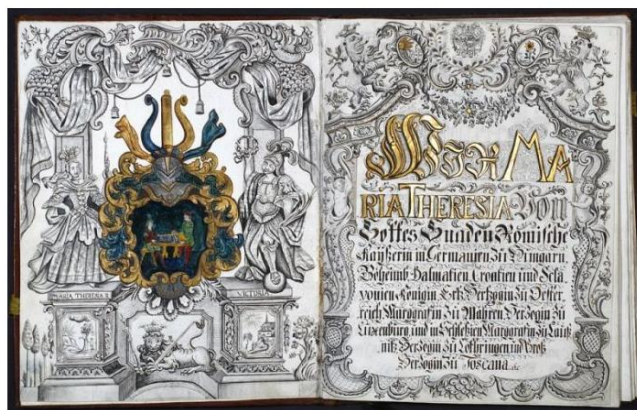 MARIA THERESIA
VICTORIA
WIR MA
RIA THERESIA Von
Gottes Gnaden Römische
Kaÿßerin in Germanien Zu Hungarn
Böheimb Dalmatien Croatien und Scla
vonien Königin Ertz Hertzogin Zu Oester
reich Marggräfin Zu Mähren Hertzogin Zu
Lüzenburg und in Schlesien Marggräfin Zu Lauß
nitz Hertzogin Zu Lothringen und Groß
Hertzogin Zu Toscana